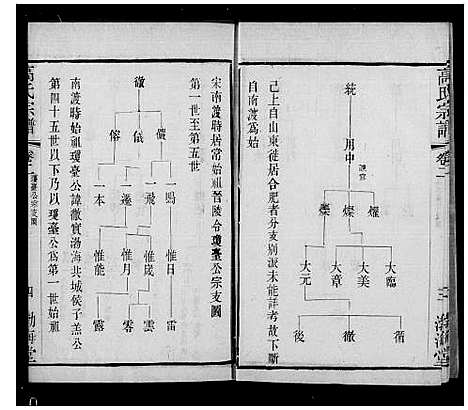 高氏宗譜
卷二
三
渤海堂
統
用中
燦
燦
燿
大元
大章
大美
大臨
後
徹
循
已上自山東徙居合肥者分支別派未能詳考故下斷
自南渡為始
宋南渡時居常始祖晉陵令瓊臺公宗支圖
第一世至第五世
徹
儂
儀
傛
一鶚
一飛
一邊
一本
惟日
惟晟
惟月
惟能
雷
雲
零
露
南渡時始祖瓊臺公諱徹實渤海共城侯子羔公
第四十五世以下乃以瓊臺公爲第一世始祖
高氏宗譜
卷二
瓊臺公宗支圖
四
渤海堂